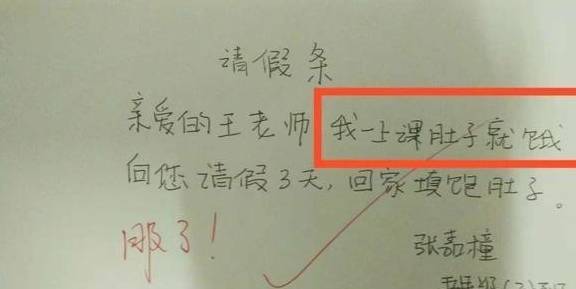 请假条
亲爱的王老师 我一上课肚子就饿
向您请假3天，回家填饱肚子。
服了！
张嘉橦